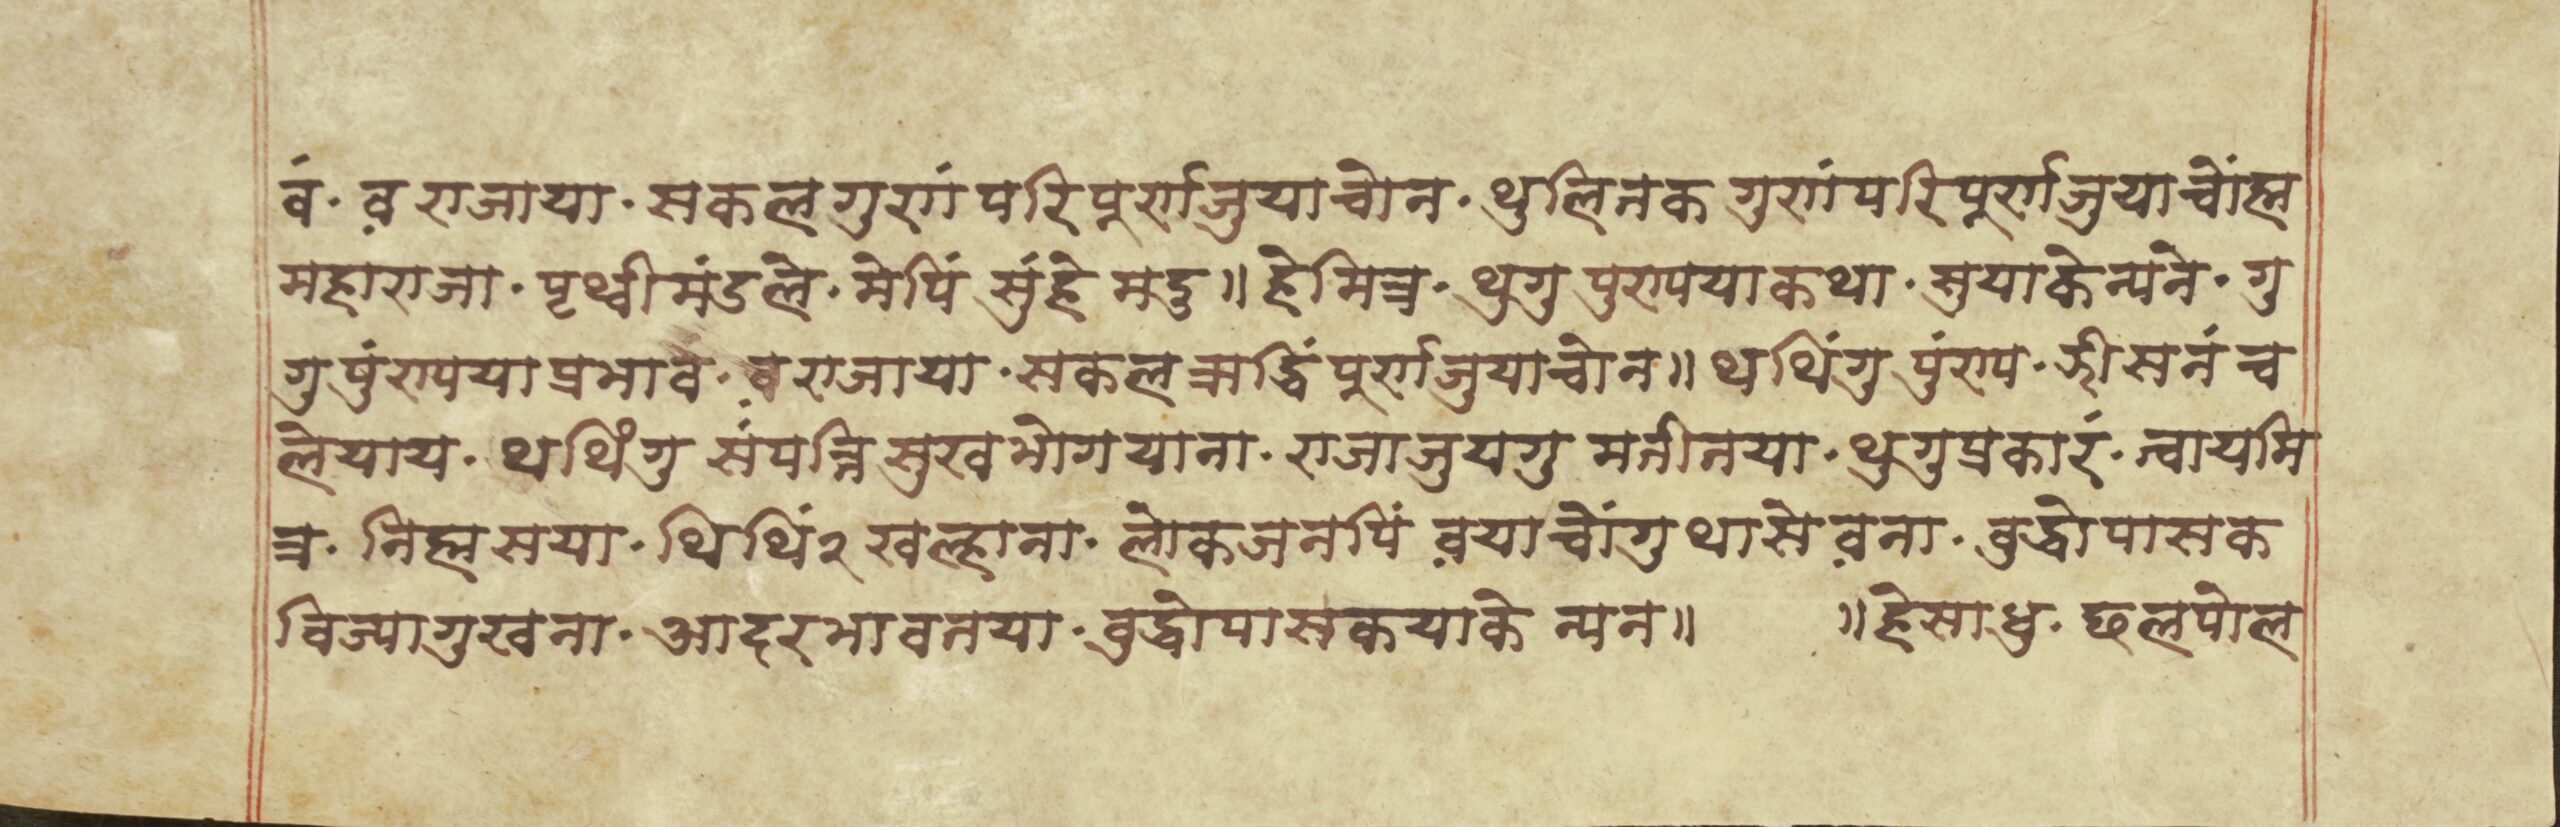 वं॰ व़राजाया॰ सकलगुणं परिपूर्णजुयाचोन॰ थुलिनक गुणंपरिपूर्णजुयाचोंह्म
महाराजा॰ पृथ्वीमंडले॰ मेपिं सुंहे मदु॥ हेमित्र॰ थुगु पुण्यया कथा॰ सुयाके न्यने॰ गु
गु पुंण्यया प्रभावं॰ व़राजाया॰ सकल ऋद्धिं पूर्णजुयाचोन॥ थथिंगु पुंण्य॰ झीसनं च
लेयाय॰ थथिंगु संपत्ति सुखभोगयाना॰ राजाजुयगु मतीनया॰ थुगुप्रकारं॰ त्वायमि
त्र॰ निह्मसया॰ थिथिं२ खल्हाना॰ लोकजनपिं व़याचोंगु थासे व़ना॰ बुद्धोपासक
बिज्यागुखना॰ आदरभावनया॰ बुद्धोपासकयाके न्यन॥ ॥ हेसाधु॰ छलपोल